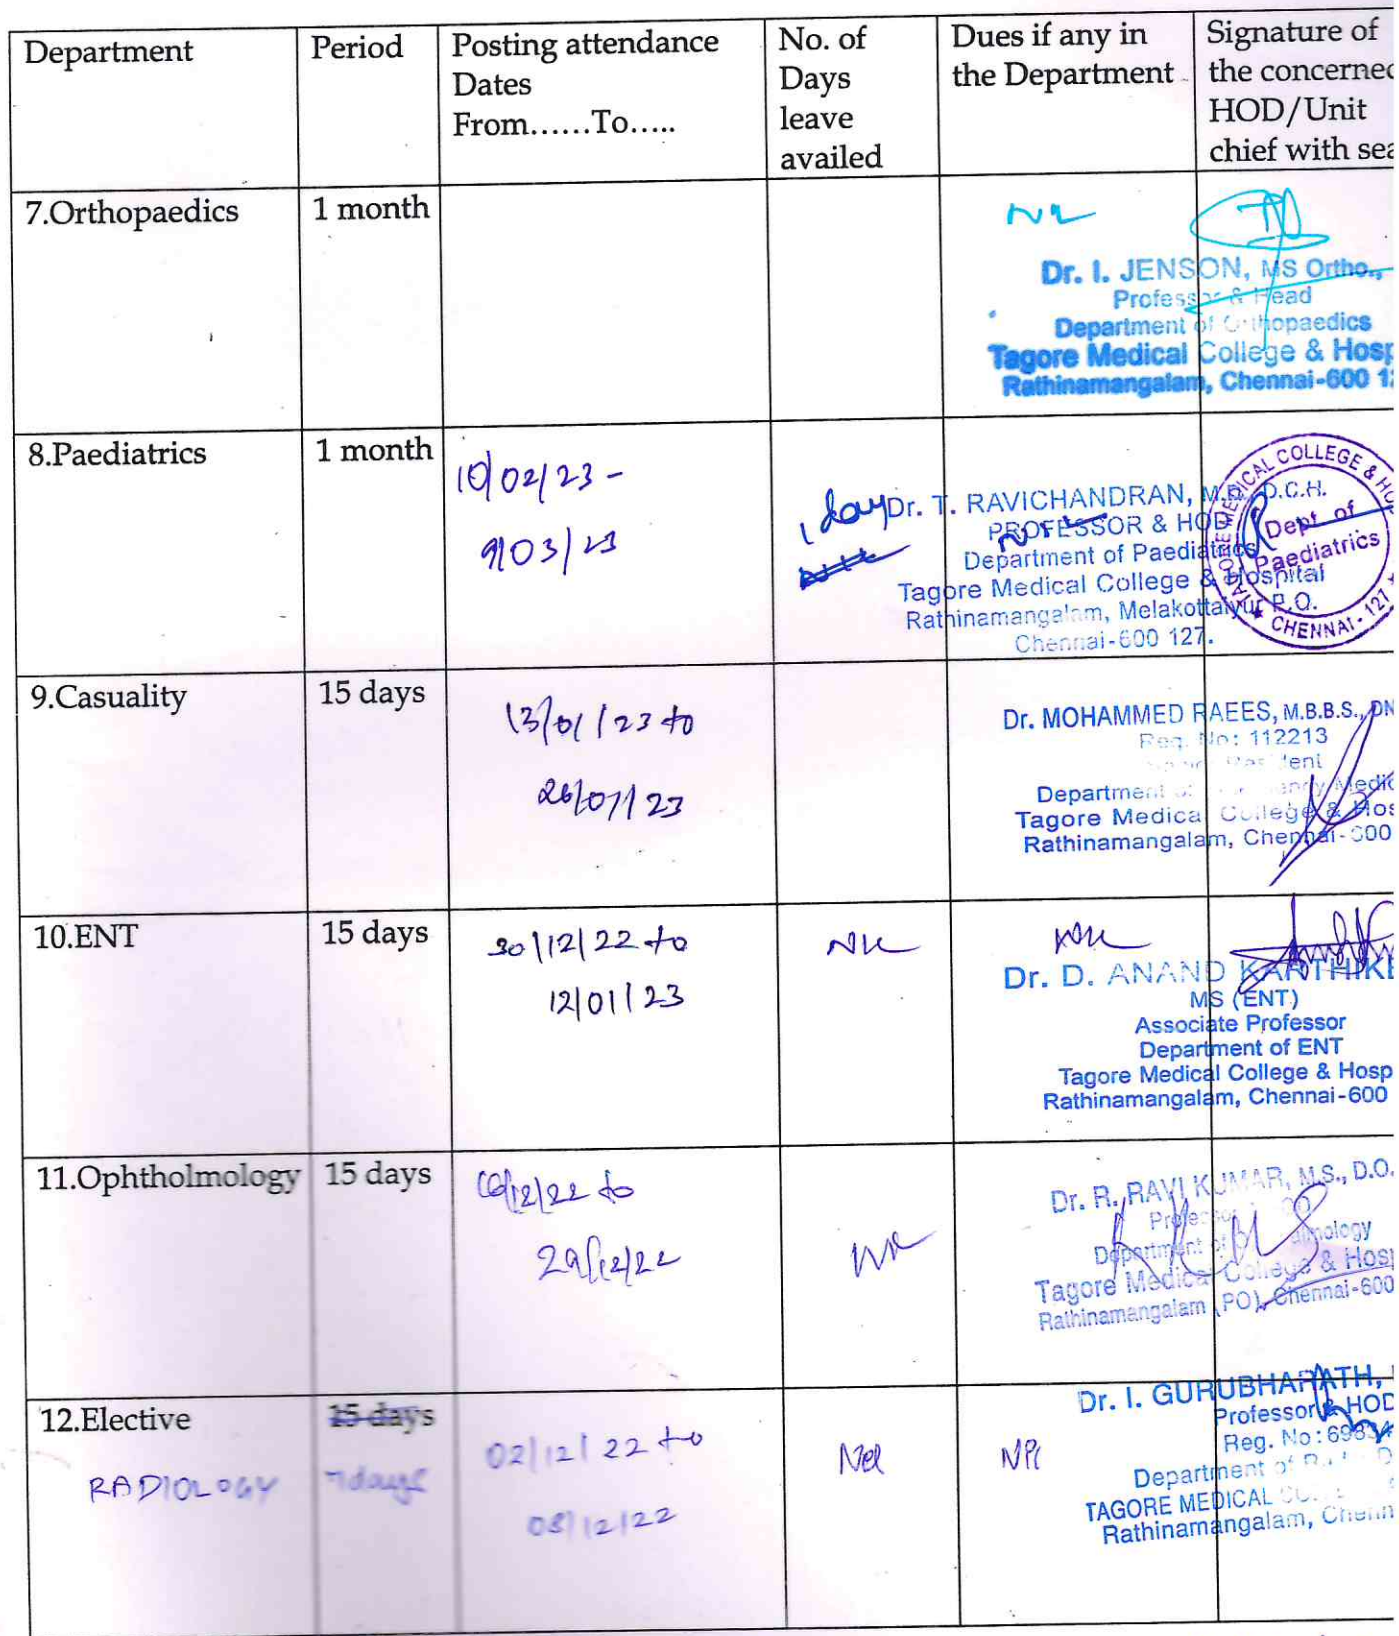 Department
Period
Posting attendance
Dates
From......To.....
No. of
Days
leave
availed
Dues if any in
the Department
Signature of
the concerned
HOD/Unit
chief with sea
7.Orthopaedics
1 month
Nil
Dr. I. JENSON, MS Ortho.,
Professor & Head
Department of Orthopaedics
Tagore Medical College & Hosp
Rathinamangalam, Chennai-600 12
8.Paediatrics
1 month
10/02/23 -
9/03/23
1 day
Dr. T. RAVICHANDRAN, M.D. D.C.H.
PROFESSOR & HOD
Department of Paediatrics
Tagore Medical College & Hospital
Rathinamangalam, Melakottaiyur P.O.
Chennai-600 127.
TAGORE MEDICAL COLLEGE & HO
Dept. of
Paediatrics
CHENNAI-127
9.Casuality
15 days
13/01/23 to
26/01/23
Dr. MOHAMMED RAEES, M.B.B.S., DN
Reg. No: 112213
Department of Medic
Tagore Medical College & Hos
Rathinamangalam, Chennai-600
10.ENT
15 days
30/12/22 to
12/01/23
Nil
Nil
Dr. D. ANAND KARTHIKE
MS (ENT)
Associate Professor
Department of ENT
Tagore Medical College & Hosp
Rathinamangalam, Chennai-600
11.Ophtholmology
15 days
16/12/22 to
29/12/22
Nil
Dr. R. RAVI KUMAR, M.S., D.O.
Professor
Department of
Tagore Medical College & Hosp
Rathinamangalam (PO), Chennai-600
12.Elective
RADIOLOGY
15 days
7 days
02/12/22 to
08/12/22
Nil
Nil
Dr. I. GURUBHARATH,
Professor & HOD
Reg. No:
Department of
TAGORE MEDICAL
Rathinamangalam, Chenn